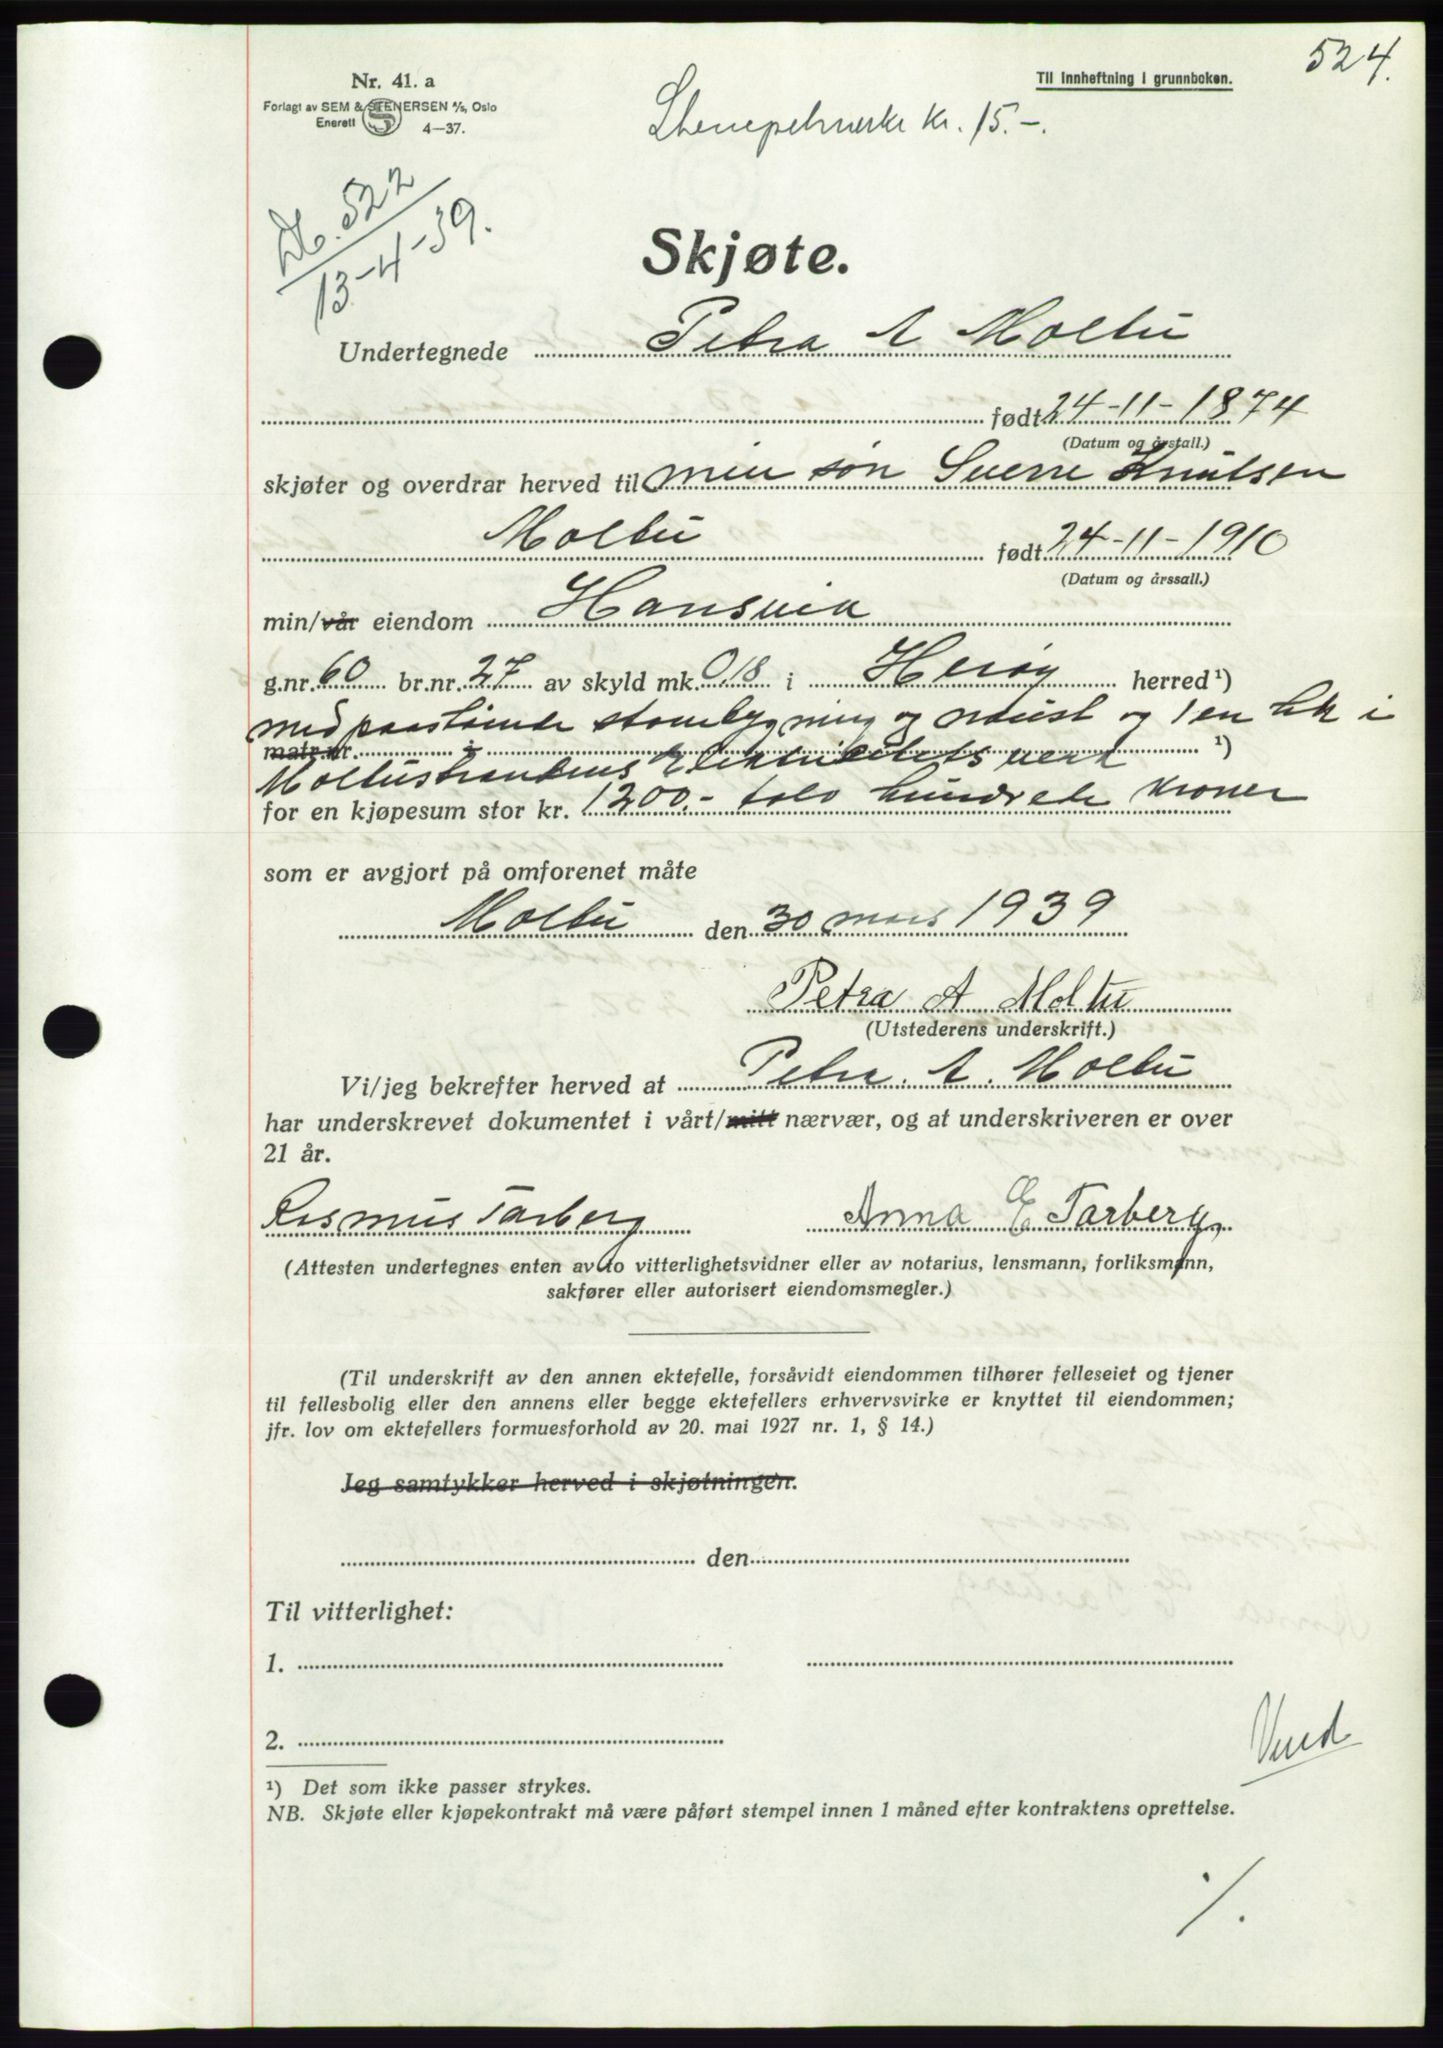 524.
Nr. 41. a
Til innheftning i grunnboken.
Forlagt av SEM & STENERSEN A/S, Oslo
Enerett
4—37.
Stempelmerke kr. 15.-.
Db. 522
13-4-39.
Skjøte.
Undertegnede Petra A Moltu
født 24-11-1874
(Datum og årstall.)
skjøter og overdrar herved til min søn Sverre Knutsen
Moltu født 24-11-1910
(Datum og årssall.)
min/vår eiendom Hansvik
g.nr. 60 br.nr. 27 av skyld mk. 0,18 i Herøy herred ¹)
med paastående stovebygning og nøust og 1 en hk i
matr.nr. i ¹)
Moltustrandens Elektrisitetsverk
for en kjøpesum stor kr. 1200.- tolv hundrede kroner
som er avgjort på omforenet måte
Moltu den 30 mars 1939
Petra A Moltu
(Utstederens underskrift.)
Vi/jeg bekrefter herved at Petra. A. Moltu
har underskrevet dokumentet i vårt/mitt nærvær, og at underskriveren er over
21 år.
Rasmus Tarberg Anna E Tarberg
(Attesten undertegnes enten av to vitterlighetsvidner eller av notarius, lensmann, forliksmann,
sakfører eller autorisert eiendomsmegler.)
(Til underskrift av den annen ektefelle, forsåvidt eiendommen tilhører felleseiet og tjener
til fellesbolig eller den annens eller begge ektefellers erhvervsvirke er knyttet til eiendommen;
jfr. lov om ektefellers formuesforhold av 20. mai 1927 nr. 1, § 14.)
Jeg samtykker herved i skjøtningen.
den
Til vitterlighet:
1.
2.
Vend
¹) Det som ikke passer strykes.
NB. Skjøte eller kjøpekontrakt må være påført stempel innen 1 måned efter kontraktens oprettelse.
./.